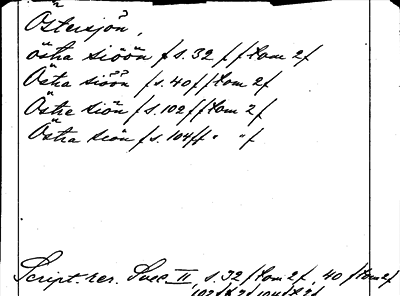 Östersjön,
östra siöön /s. 32 f /tom 2/
Östra siöön /s. 40 f /tom 2/
Östra siön /s. 102 f /tom 2/
Östra siön /s. 104 ff " " /
Script. rer. Svec. II, s. 32 /tom 2/, 40 /tom 2/
102 104